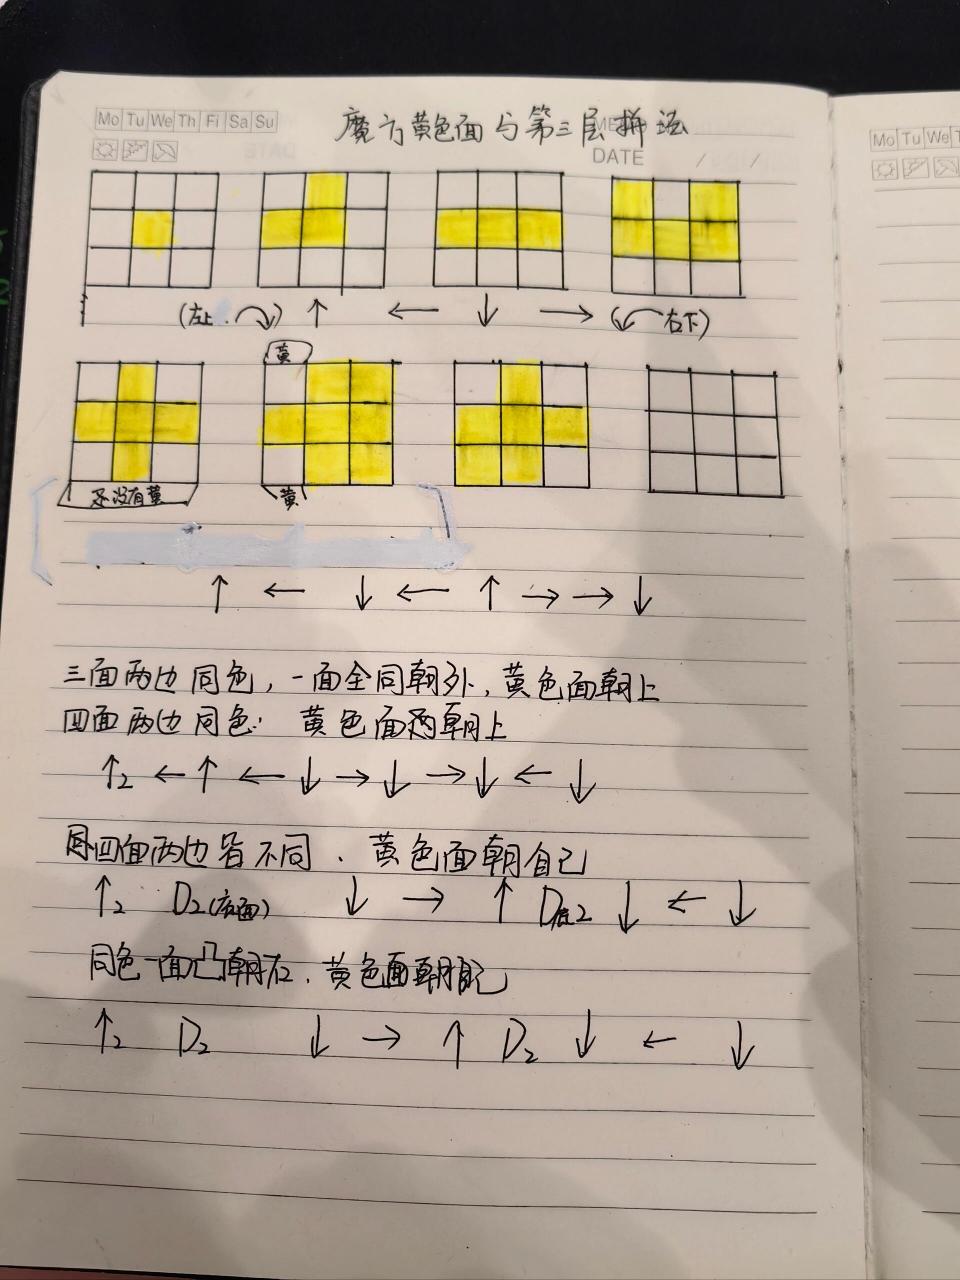 Mo Tu We Th Fr Sa Su
魔方黄色面与第三层拼法
DATE / /
Mo Tu We T
(左上 ↷) ↑ ← ↓ → (↶ 右下)
黄
还没有黄
黄
↑ ← ↓ ← ↑ → → ↓
三面两边同色,一面全同朝外,黄色面朝上
四面两边同色: 黄色面朝上
↑2 ← ↑ ← ↓ → ↓ → ↓ ← ↓
四面两边皆不同、黄色面朝自己
↑2 D2(右面) ↓ → ↑ D2 ↓ ← ↓
同色一面凸朝右、黄色面朝自己
↑2 D2 ↓ → ↑ D2 ↓ ← ↓